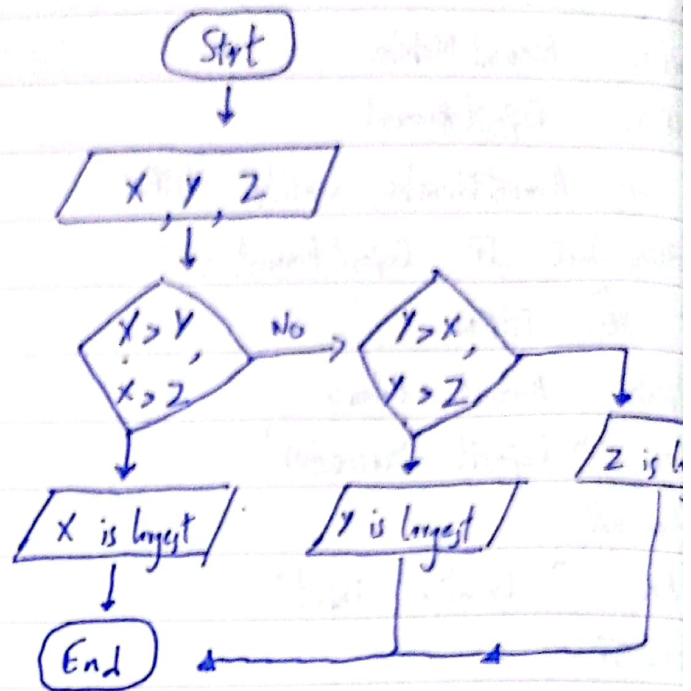 Strt
X, Y, Z
X > Y,
X > Z
No
Y > X,
Y > Z
X is largest
Y is largest
Z is
End